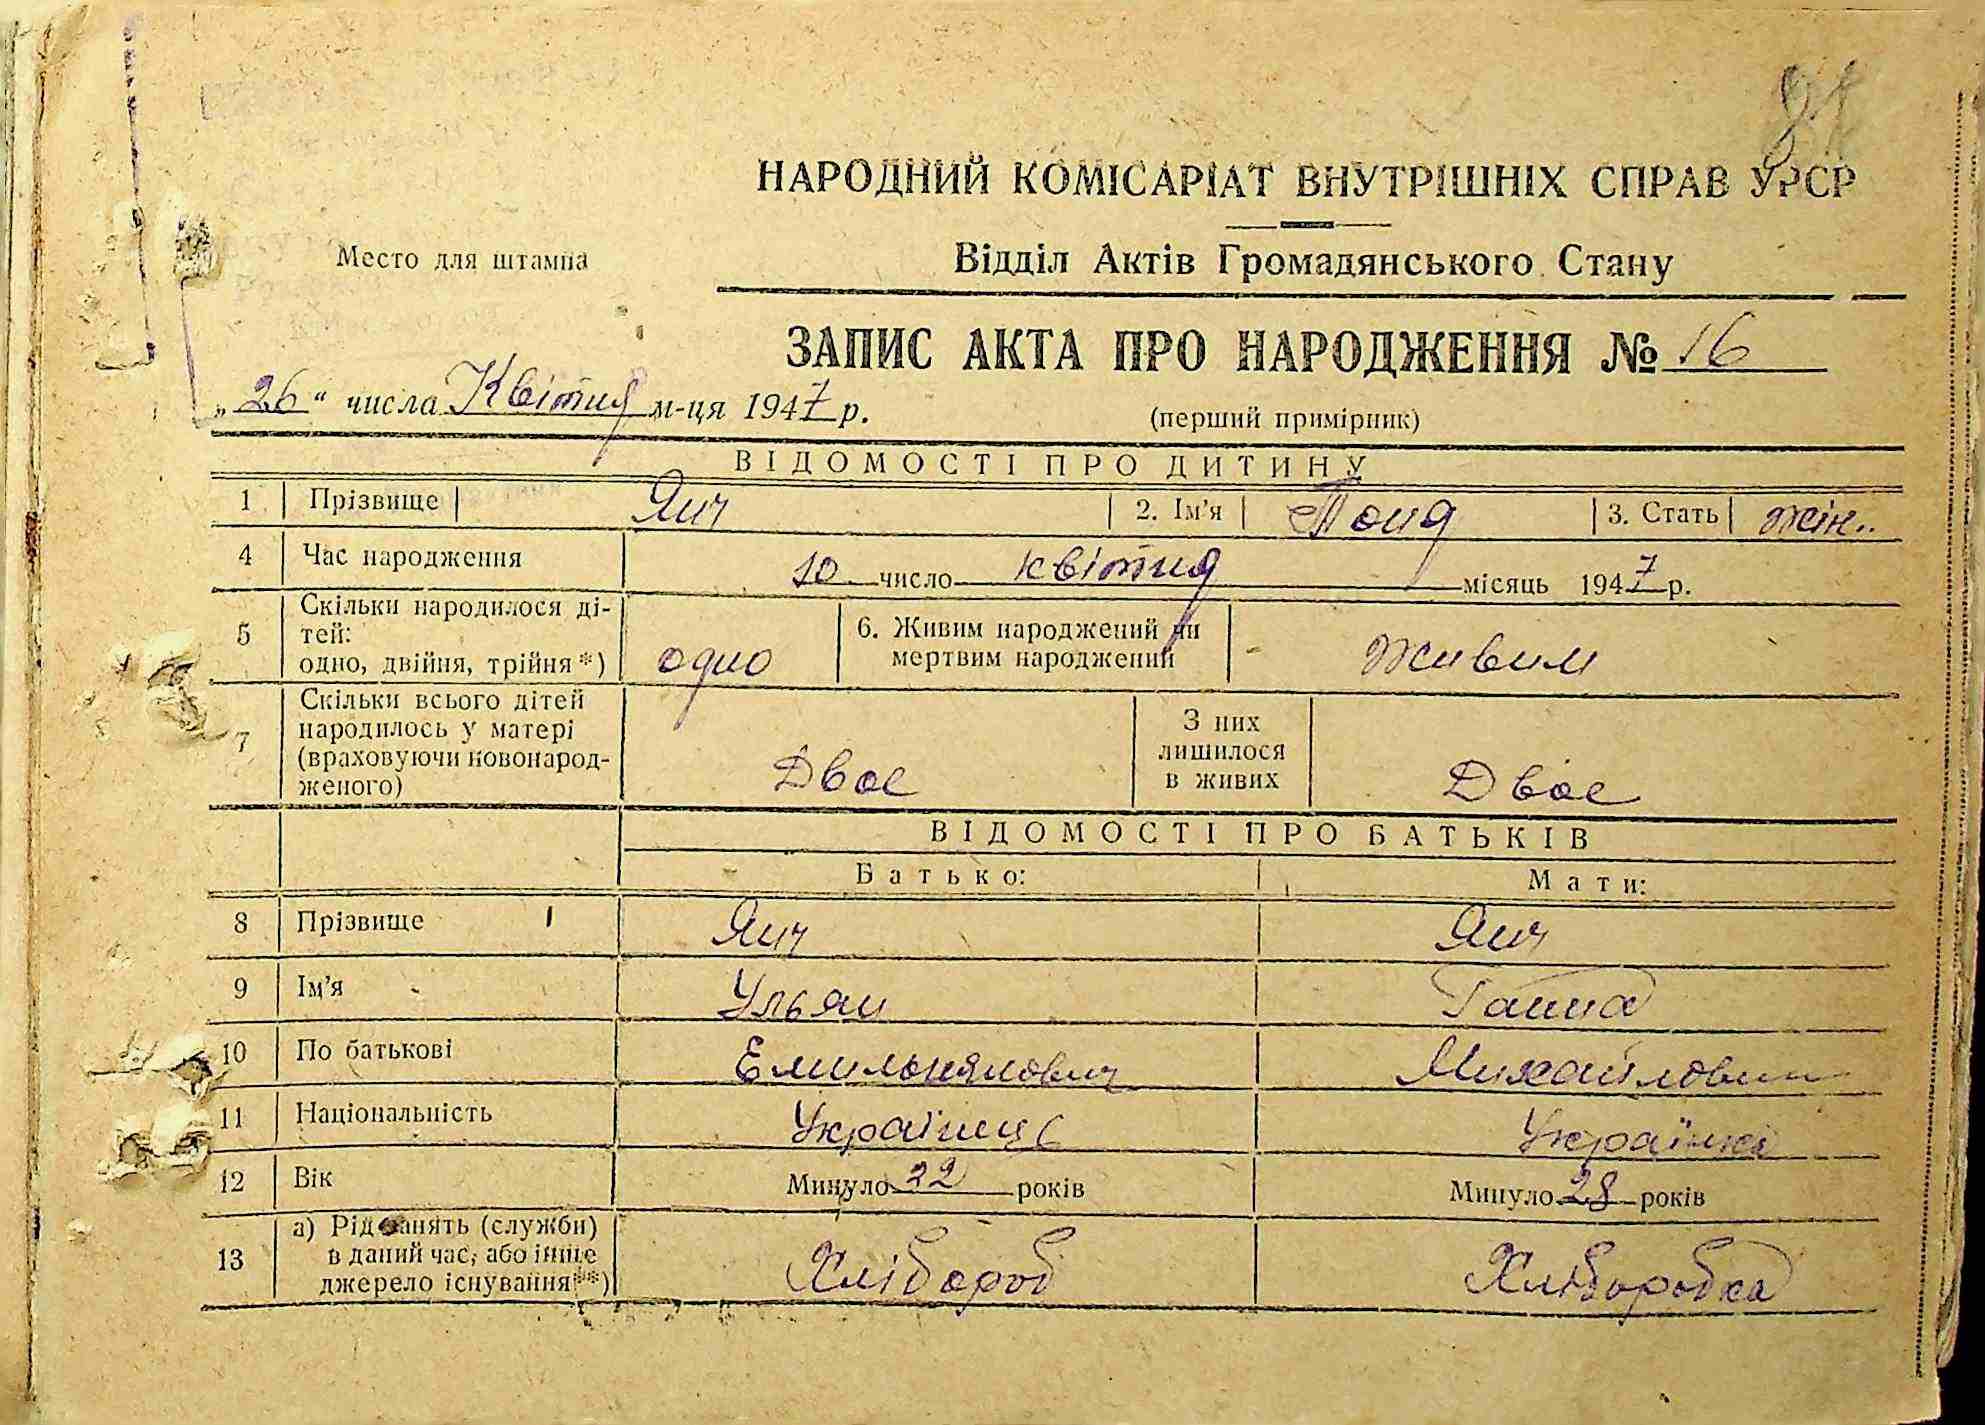 81
НАРОДНИЙ КОМІСАРІАТ ВНУТРІШНІХ СПРАВ УРСР
Место для штампа
Відділ Актів Громадянського Стану
ЗАПИС АКТА ПРО НАРОДЖЕННЯ № 16
„26“ числа Квітня м-ця 1947 р.
(перший примірник)
ВІДОМОСТІ ПРО ДИТИНУ
1 Прізвище Янч 2. Ім'я Тоня 3. Стать жін.
4 Час народження 10 число квітня місяць 1947 р.
5 Скільки народилося ді-
тей:
одно, двійня, трійня*) одно 6. Живим народжений чи
мертвим народжений Живим
7 Скільки всього дітей
народилось у матері
(враховуючи новонарод-
женого) Двоє З них
лишилося
в живих Двоє
ВІДОМОСТІ ПРО БАТЬКІВ
Батько: Мати:
8 Прізвище Янч Янч
9 Ім'я Ульян Ганна
10 По батькові Емильянович Михайлович
11 Національність Українць Українка
12 Вік Минуло 22 років Минуло 28 років
13 а) Рід занять (служби)
в даний час, або інше
джерело існування**) Хлібороб Хліборобка